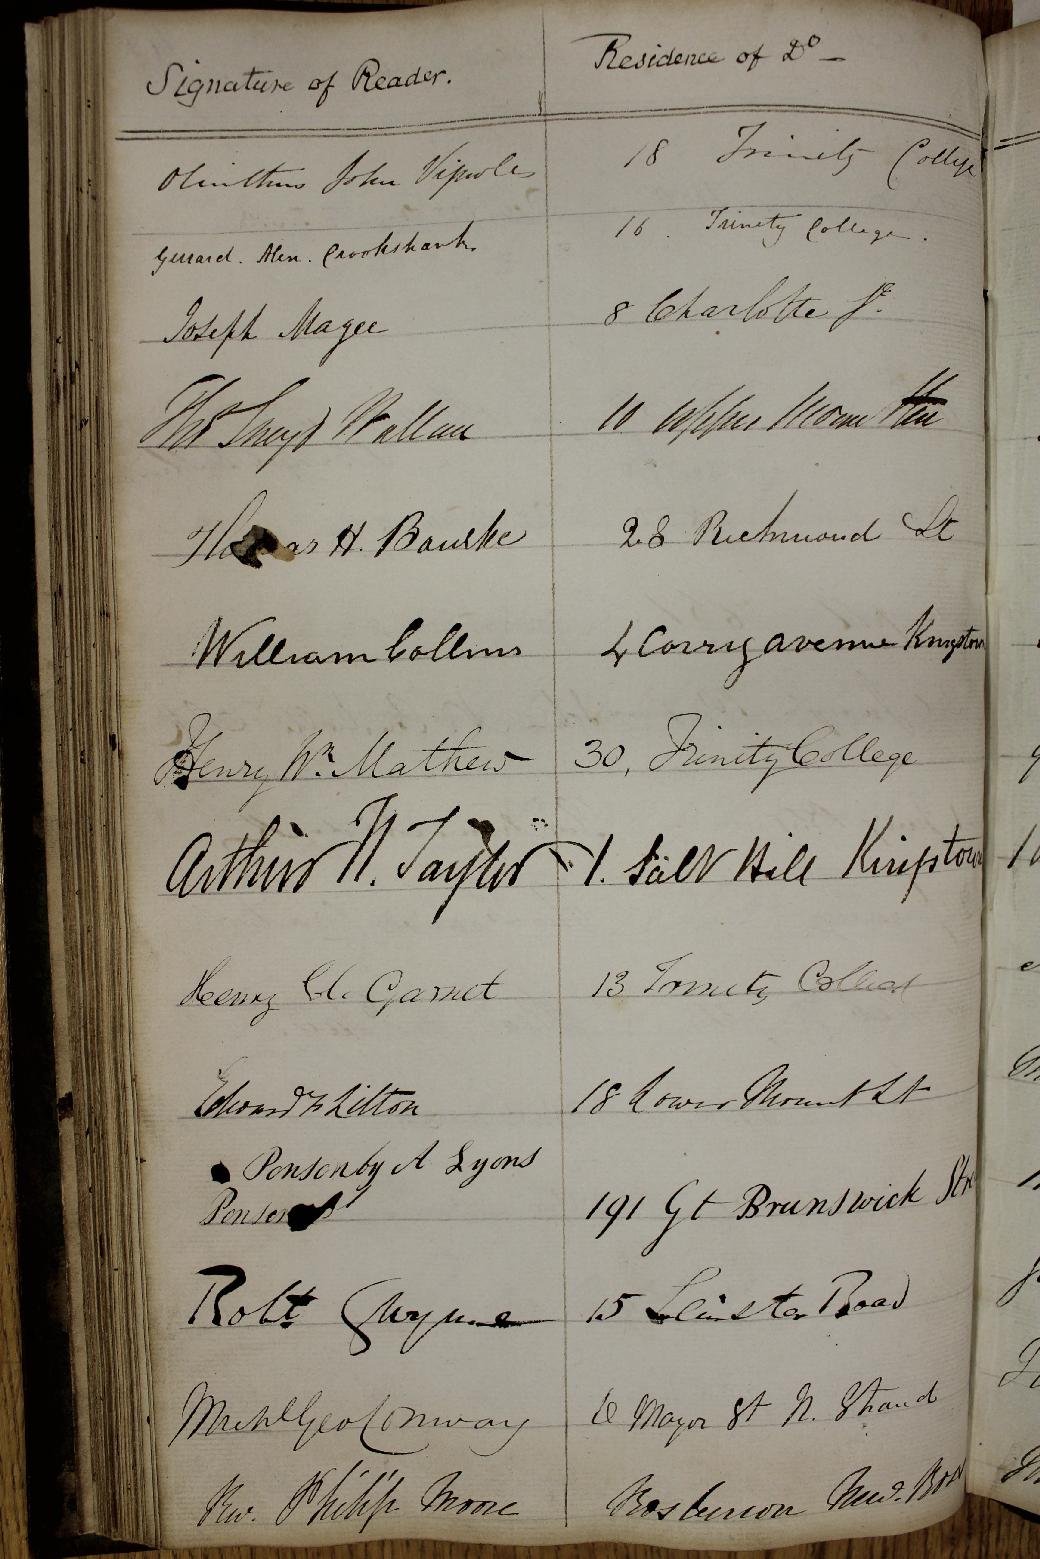 Signature of Reader. Residence of Do —
Olinthus John Vignoles 18 Trinity College
Gerrard. Alex. Crookshank. 16. Trinity College.
Joseph Magee 8 Charlotte St.
Thos Lloyd 10 Upper Mount
Thomas H. Bourke 28 Richmond St
William Collins 4 Corrig avenue Kingstown
Henry Wm. Mathew 30, Trinity College
Arthur N. Taylor 1. Salt Hill Kingstown
Henry Garnet 13 Trinity
Edward F Litton 18 Lower Mount St
Ponsonby A Lyons
191 Gt Brunswick Stre
Robt Gwynne 15 Leinster Road
Geo Conway 6 Mayor St N. Strand
Rev. Philip Moore